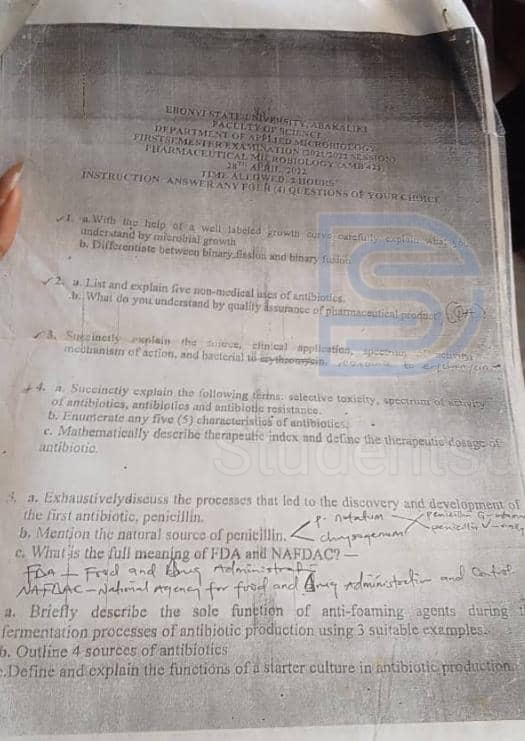 EBONYI STATE UNIVERSITY, ABAKALIKI
FACULTY OF SCIENCE
DEPARTMENT OF APPLIED MICROBIOLOGY
FIRST SEMESTER EXAMINATION (2021/2022 SESSION)
PHARMACEUTICAL MICROBIOLOGY (AMB 423)
28TH APRIL, 2022
TIME ALLOWED: 2 HOURS
INSTRUCTION: ANSWER ANY FOUR (4) QUESTIONS OF YOUR CHOICE
1. a. With the help of a well labeled growth curve carefully explain what you
understand by microbial growth
b. Differentiate between binary fission and binary fusion
2. a. List and explain five non-medical uses of antibiotics.
b. What do you understand by quality assurance of pharmaceutical product?
3. Succinctly explain the source, clinical application, spectrum activity
mechanism of action, and bacterial to erythromycin. resistance to erythromycin
4. a. Succinctly explain the following terms: selective toxicity, spectrum of activity
of antibiotics, antibiotics and antibiotic resistance.
b. Enumerate any five (5) characteristics of antibiotics.
c. Mathematically describe therapeutic index and define the therapeutic dosage of
antibiotic.
Students
a. Exhaustivelydiscuss the processes that led to the discovery and development of
the first antibiotic, penicillin.
b. Mention the natural source of penicillin. P. notatum chrysogenum penicillin G penicillin V
c. What is the full meaning of FDA and NAFDAC?
FDA - Food and Drug Administrati
NAFDAC - National Agency for food and Drug Administration and Control
a. Briefly describe the sole function of anti-foaming agents during
fermentation processes of antibiotic production using 3 suitable examples.
b. Outline 4 sources of antibiotics
.Define and explain the functions of a starter culture in antibiotic production.